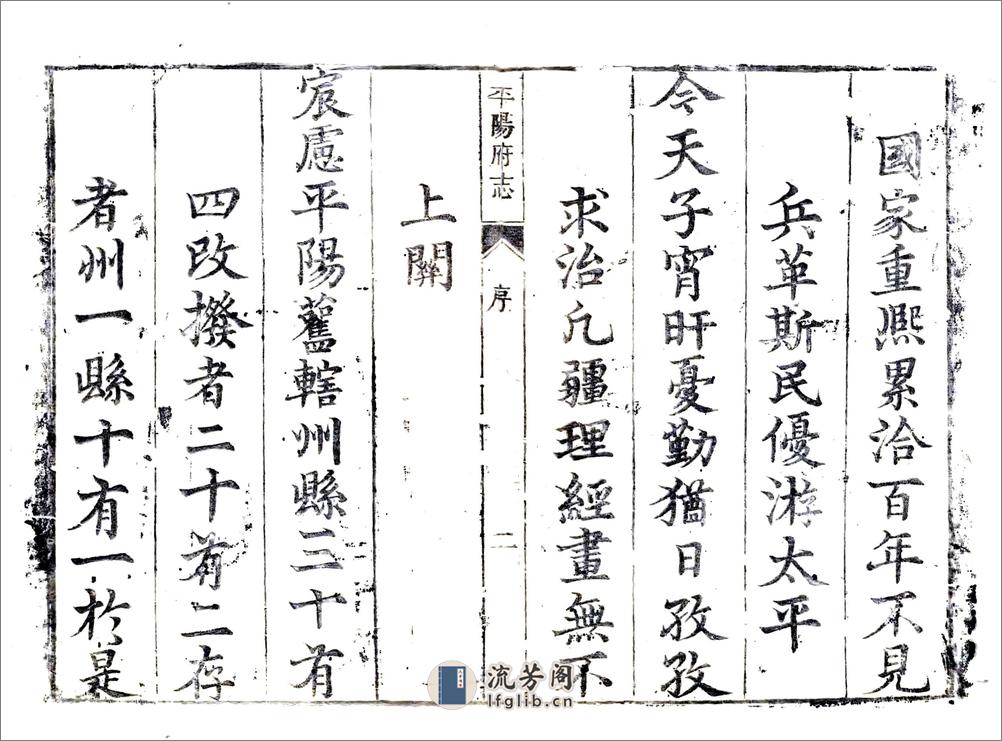 國家重熈累洽百年不見
兵革斯民優游太平
今天子宵旰憂勤猶日孜孜
求治凢疆理經畫無不
平陽府志
序
二
上關
宸慮平陽舊轄州縣三十有
四改撥者二十有二存
者州一縣十有一於是
流芳阁
lfglib.cn